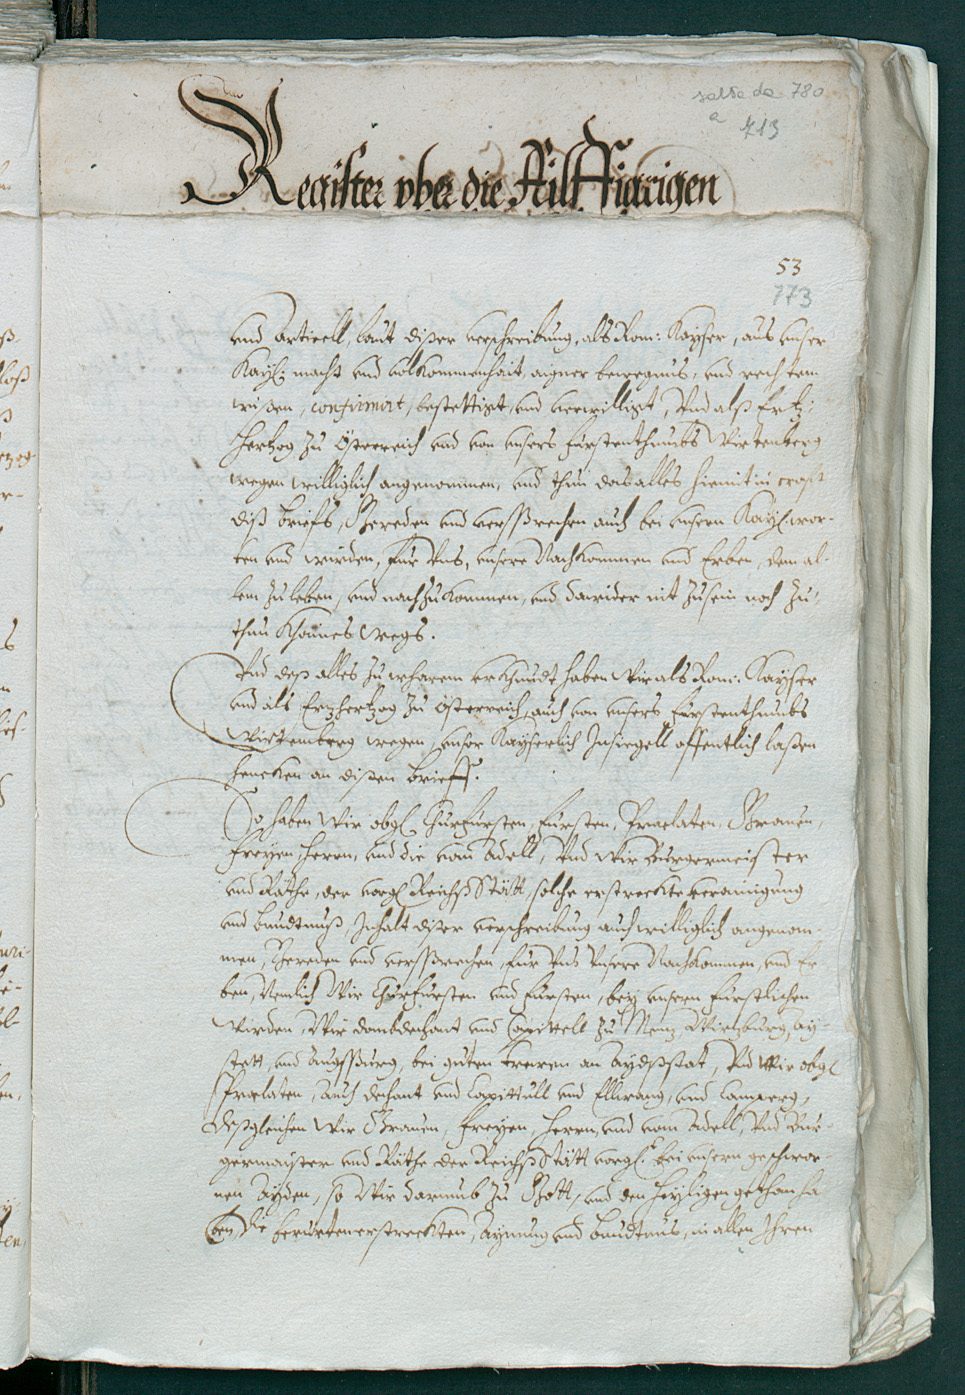 salta da 780
a 713
Register vber die Ailffjarigen
53
773
vnd Articell, laut diser verschreibung, als Rom: Kayser, aus vnser
Kay: macht vnd volkommenhait, aigner bewegnus, vnd rechtem
wissen, confirmirt, bestettigt, vnd verwilligt, Vnd alß Ertz-
hertzog zu Österreich vnd von vnsers fürstenthumbs Wirtenberg
wegen williglich angenommen, vnd thun das alles hiemit in crafft
diß briefs, Gereden vnd versprechen auch bei vnsern Kay: wor-
ten vnd wirden, für Vns, vnsere Nachkommen vnd Erben, dem al-
lem zuleben, vnd nachzukommen, vnd darwider nit zusein noch zu-
thun khaines wegs.
Vnd deß alles zu wharem vrkhundt haben Wir als Rom: Kayser
vnd als Ertzhertzog zu Österreich, auch von vnsers fürstenthumbs
Wirtemberg wegen, vnser Kayserlich Insiegell offentlich laßen
hencken an disen brieff.
So haben Wir obgl. Churfürsten, fürsten, Praelaten, Grauen,
freyen, herrn, vnd die vom Adell, Vnd Wir Burgermeister
vnd Räthe, der vorgl. Reichß Stätt, solche erstreckte verainigung
vnd bundtnuß, Inhalt diser verschreibung auch williglich angenom-
men, Gereden vnd versprechen, für Vns Vnsere Nachkommen, vnd Er-
ben, Nemlich Wir Churfürsten vnd fürsten, bey vnsern fürstlichen
Wirden, Wir dombdechant vnd Capittell zu Menz, Wirtzburg, Ay-
stett, vnd Augspurg, bei guten trewen an Aydsstat, Vnd Wir obgl.
Praelaten, auch dechant vnd Capittull vnd Ellwang, vnd Camperg,
Deßgleichen Wir Grauen, freyen, herrn, vnd vom Adell, Vnd Bur-
germaister vnd Räthe der Reichß Stätt vorgl. bei vnsern geschwor-
nen Ayden, so Wir darumb zu Gott, vnd den heyligen gethon ha-
ben, Die berürten erstreckten, Aynung vnd bundtnus, in allen Ihren